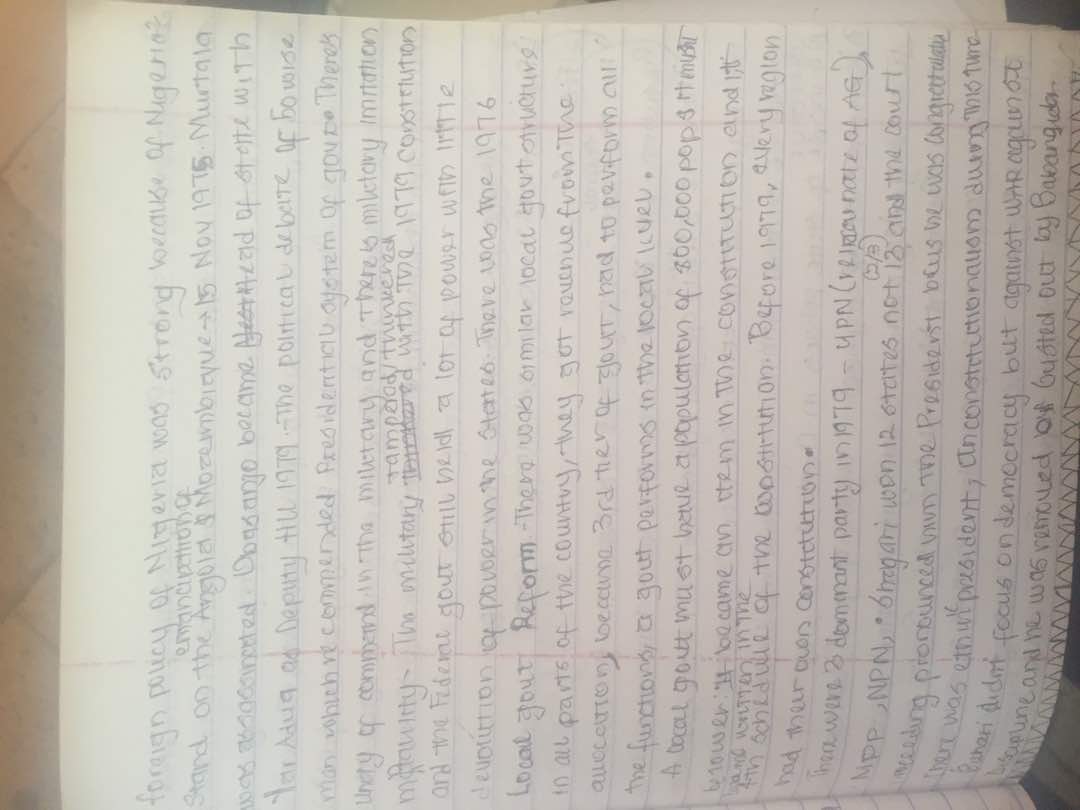 foreign policy of Nigeria was strong because of Nigeria's
emancipation of
Stand on the Angola & Mozembique → 15 Nov 1975. Murtala
was assassinated. Obasanjo became Head of state with
Yar Adua as Deputy till 1979. The political debate of 50 wise
men which recommended Presidential system of govt. There's
unity of command in the military and there's military
tampered/thinkered
The military with the 1979 constitution
and the Federal govt still held a lot of power with little
devolution of power in the states. There was the 1976
Local govt Reform - There was similar local govt structure
in all parts of the country, they got revenue from the
allocation, became 3rd tier of govt, had to perform all
the functions, a govt performs in the local level.
A local govt must have a population of 800,000 pops it must
be lower. It became an item in the constitution and it
written in the
4th schedule of the constitution. Before 1979, every region
had their own constitution.
There were 3 dominant party in 1979 - UPN (reincarnate of AG),
NPP, NPN, Shagari won 12 states not 13 and the court
(2/3)
proceeding pronounced him the President because he was
There was president, unconstitutionalism during this time
Buhari didnt focus on democracy but against war against
and he was removed (ousted out by Babangida.